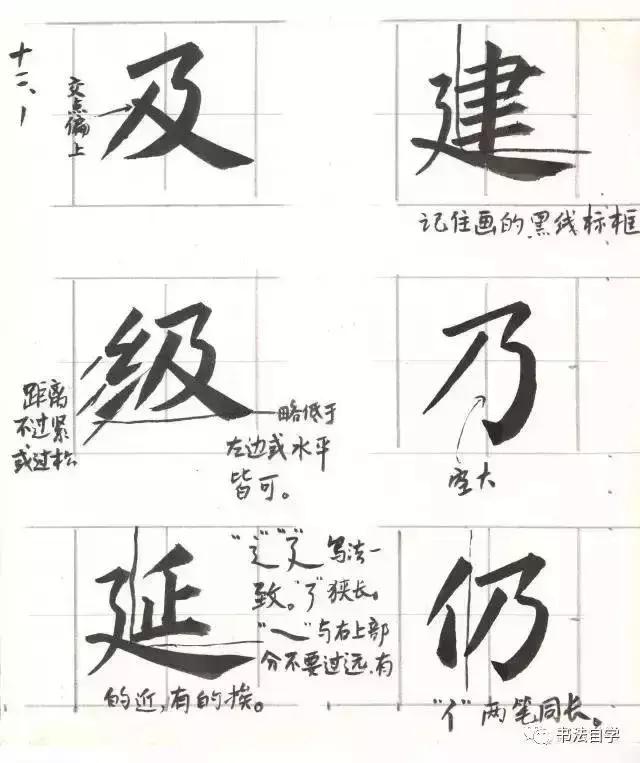 十二、1
及
交点偏上
建
记住画的黑线标框
级
距离
不过紧
或过松
略低于
左边或水平
皆可。
乃
空大
延
"辶""廴"写法一
致。"㇋"狭长。
"㇏"与右上部
分不要过远,有
的近,有的挨。
仍
"亻"两笔同长。
书法自学